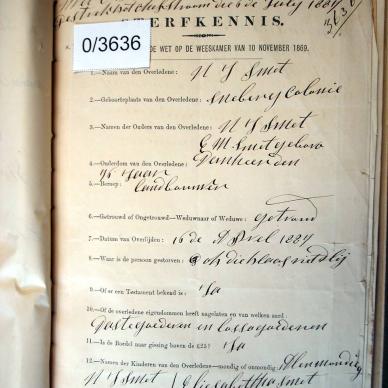 de July 1884
STERFKENNIS,
0/3636
DE WET OP DE WEESKAMER VAN 10 NOVEMBER 1869.
1.—Naam van den Overledene: N J Smit
2.—Geboorteplaats van den Overledene: Colonie
3.—Namen der Ouders van den Overledene: N J Smit
E M Smit gebore
4.—Ouderdom van den Overledene: van Heerden
jaar
5.—Beroep: Landbouwer
6.—Getrouwd of Ongetrouwd—Weduwnaar of Weduwe: getroud
7.—Datum van Overlijden: 16 de April 1884
8.—Waar is de persoon gestorven:
9.—Of er een Testament bekend is: Ja
10.—Of de overledene eigendommen heeft nagelaten en van welken aard:
Vastegoederen en lossegoederen
11.—Is de Boedel naar gissing boven de £25? Ja
12.—Namen der Kinderen van den Overledene—mondig of onmondig: Allen mondig
N J Smit